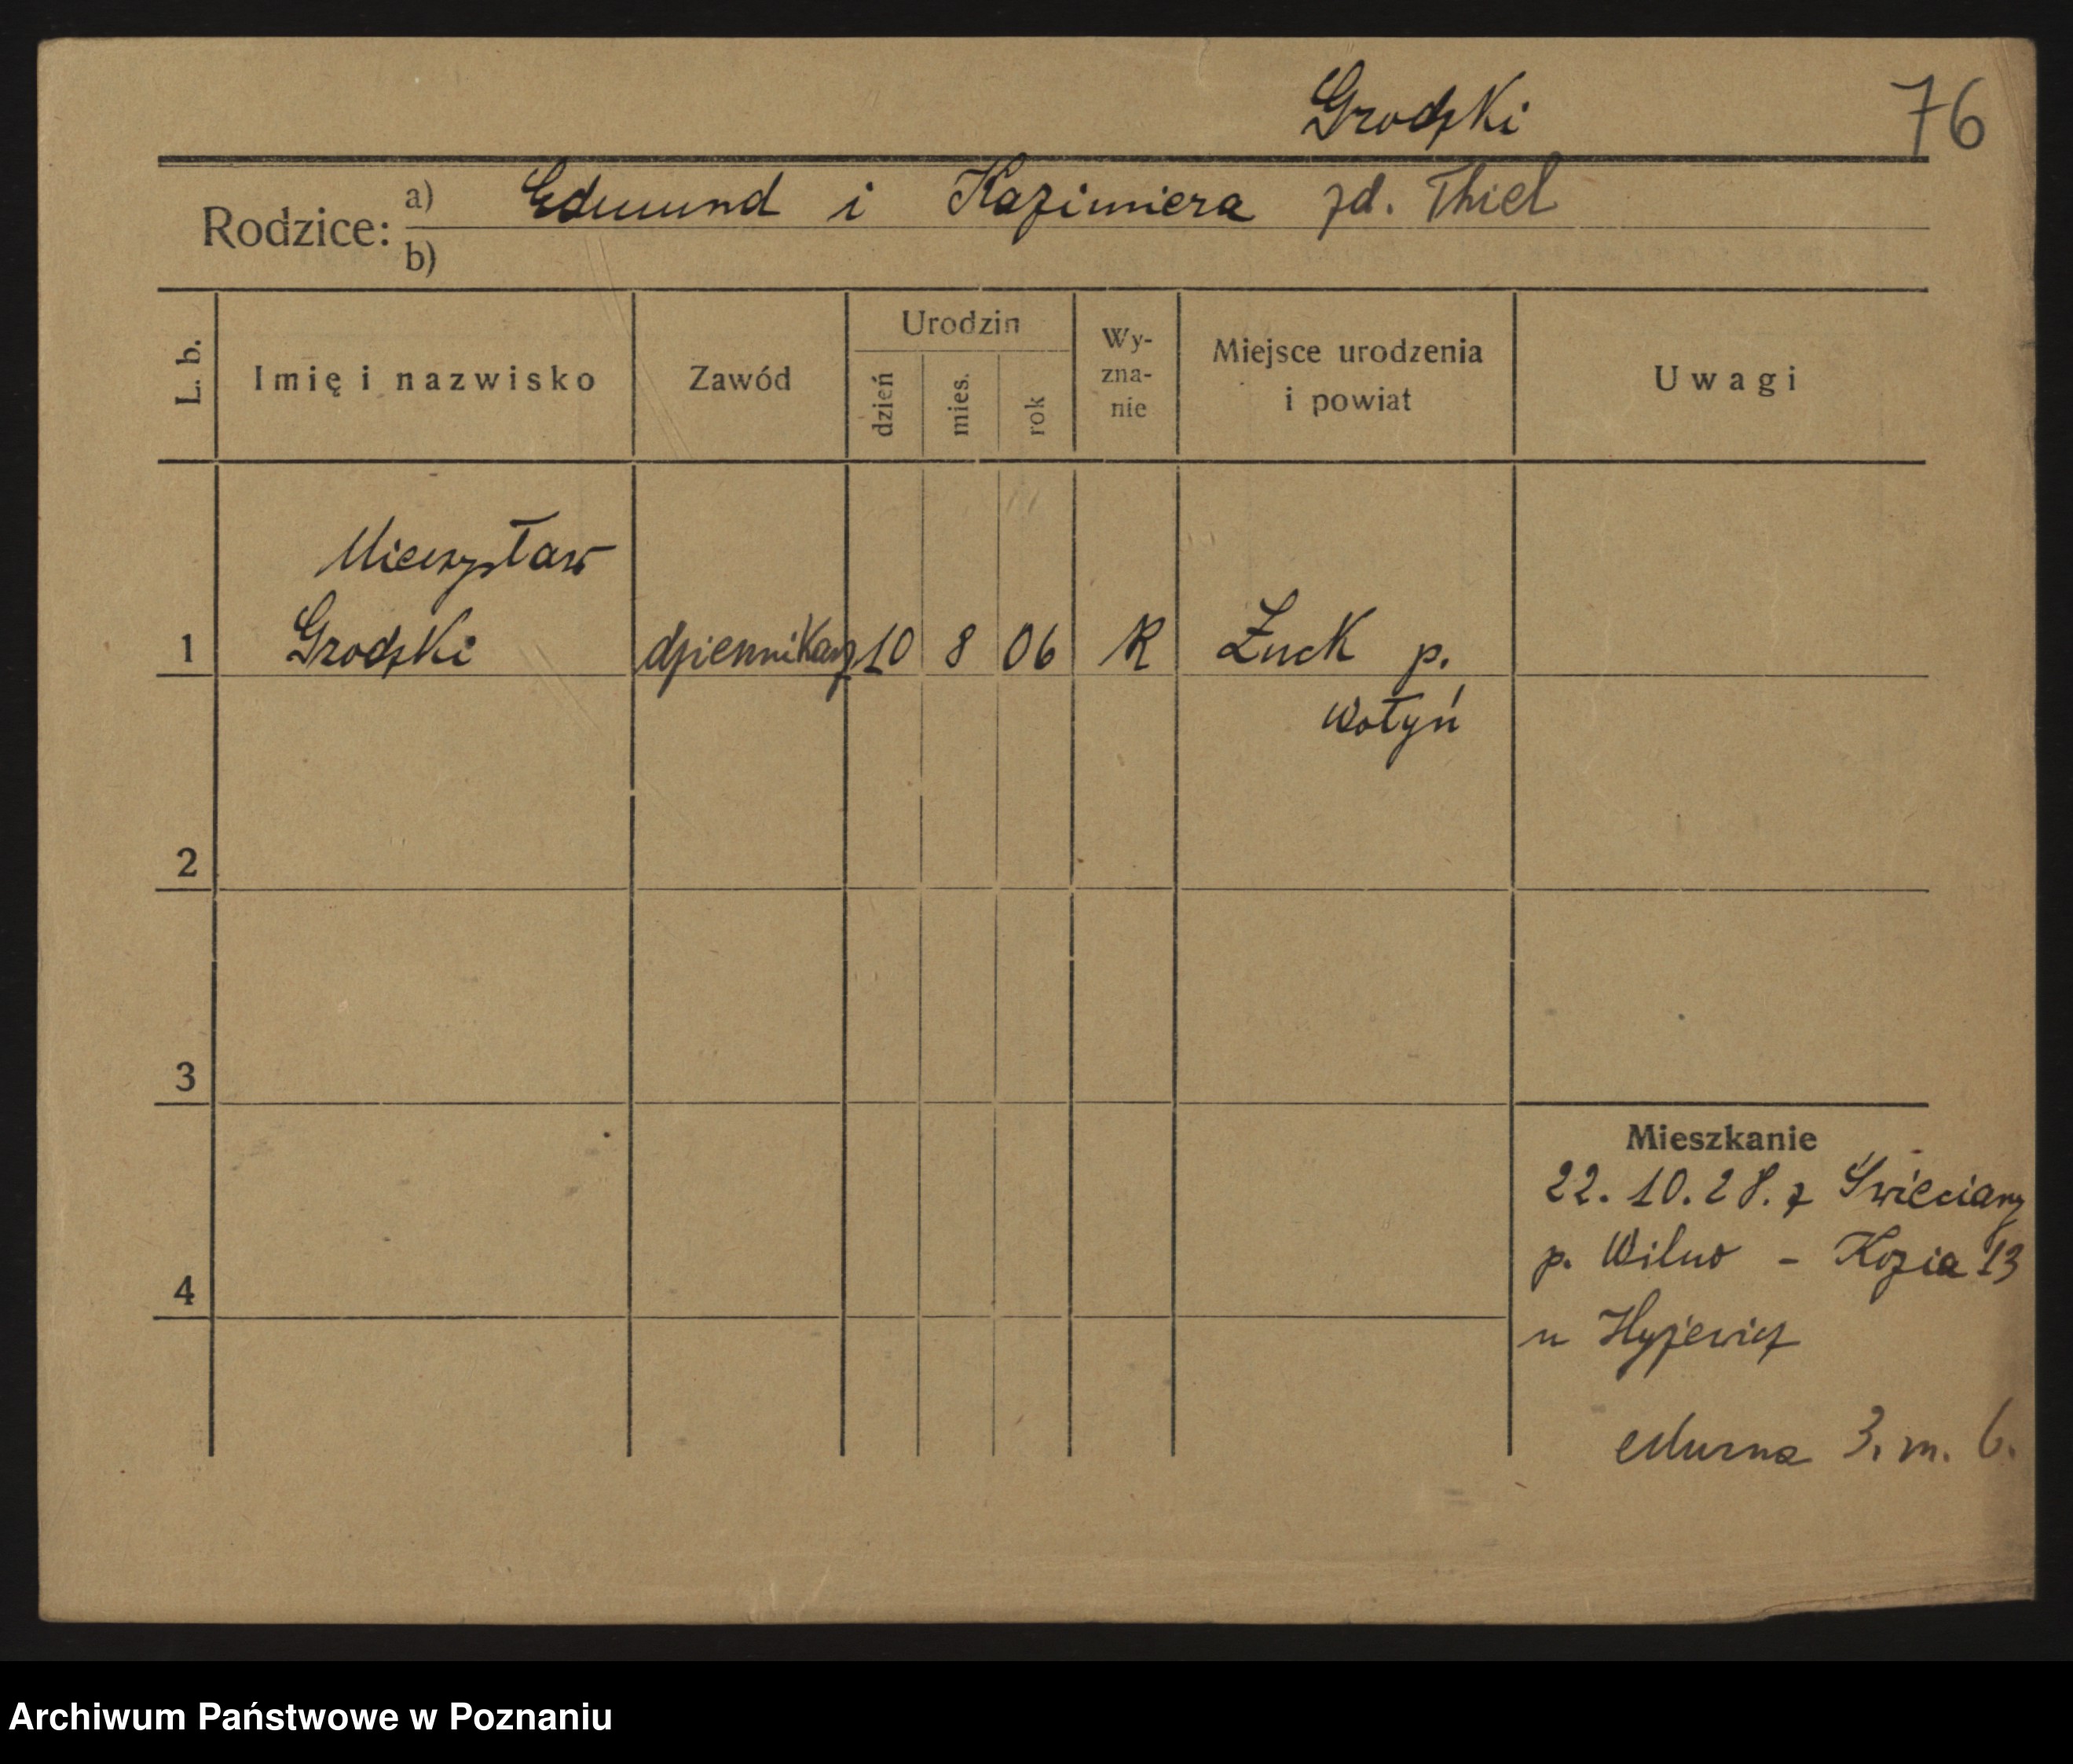 Grodzki
76
Rodzice: a) Edmund i Kazimiera zd. Thiel
b)
L. b.
Imię i nazwisko
Zawód
Urodzin
dzień
mies.
rok
Wy-
zna-
nie
Miejsce urodzenia
i powiat
Uwagi
Mieczysław
1 Grodzki dziennikarz 10 8 06 R Łuck p.
Wołyń
2
3
4
Mieszkanie
22.10.28. z Święciany
p. Wilno - Kozia 13
u Hyżewicz
Murna 3. m. 6.
Archiwum Państwowe w Poznaniu